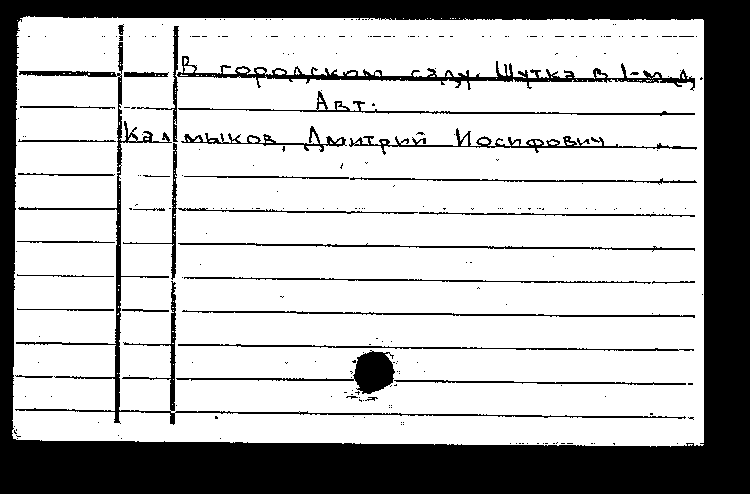 В городском саду. Шутка в 1-м д.
Авт:
Калмыков, Дмитрий Иосифович.